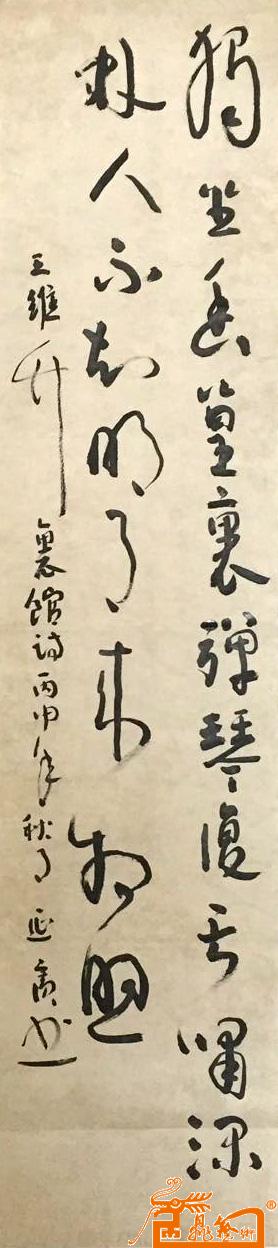 獨坐幽篁裏彈琴復長嘯深
林人不知明月來相照
王維竹裏館詩丙申年秋月延書